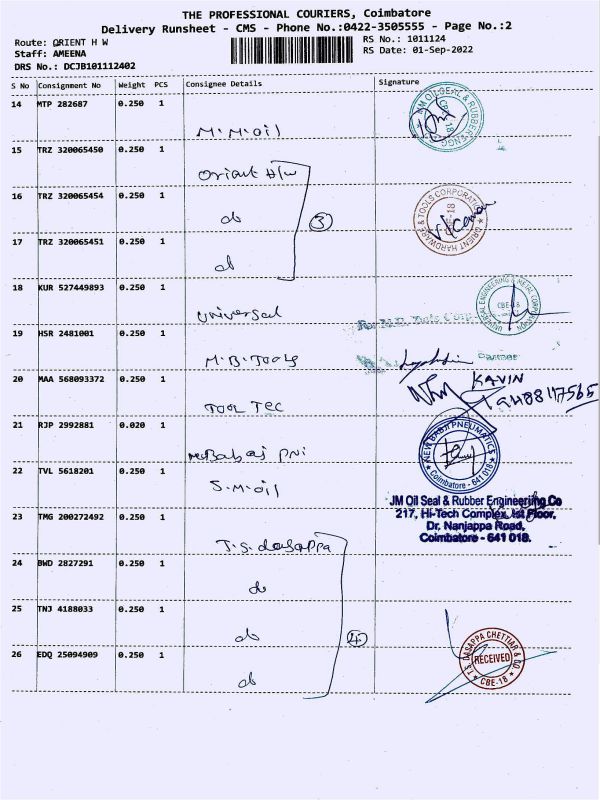 THE PROFESSIONAL COURIERS, Coimbatore
Delivery Runsheet - CMS - Phone No.:0422-3505555 - Page No.:2
Route: ORIENT H W
RS No.: 1011124
Staff: AMEENA
RS Date: 01-Sep-2022
DRS No.: DCJB101112402
S No Consignment No Weight PCS Consignee Details Signature
14 MTP 282687 0.250 1
M.M.Oil
JM OILSEAL & RUBBER ENGG
CBE-18
15 TRZ 320065450 0.250 1
Orient H/w
16 TRZ 320065454 0.250 1
do
3
ORIENT HARDWARE & TOOLS CORPORATION
CBE-18
17 TRZ 320065451 0.250 1
do
18 KUR 527449893 0.250 1
Universal
UNIVERSAL ENGINEERING & METAL CORPN
CBE-18
19 HSR 2481001 0.250 1
M.B.Tools
Partner
20 MAA 568093372 0.250 1
TOOL TEC
KAVIN
21 RJP 2992881 0.020 1
PNI
NEW BABJI PNEUMATICS
Coimbatore - 641 018
22 TVL 5618201 0.250 1
S.M.Oil
JM Oil Seal & Rubber Engineering Co
217, Hi-Tech Complex, Ist Floor,
Dr. Nanjappa Road,
Coimbatore - 641 018.
23 TMG 200272492 0.250 1
T.S. dasappa
24 BWD 2827291 0.250 1
do
25 TNJ 4188033 0.250 1
do
4
26 EDQ 25094909 0.250 1
do
T.S. DASAPPA CHETTIAR & CO
RECEIVED
CBE-18